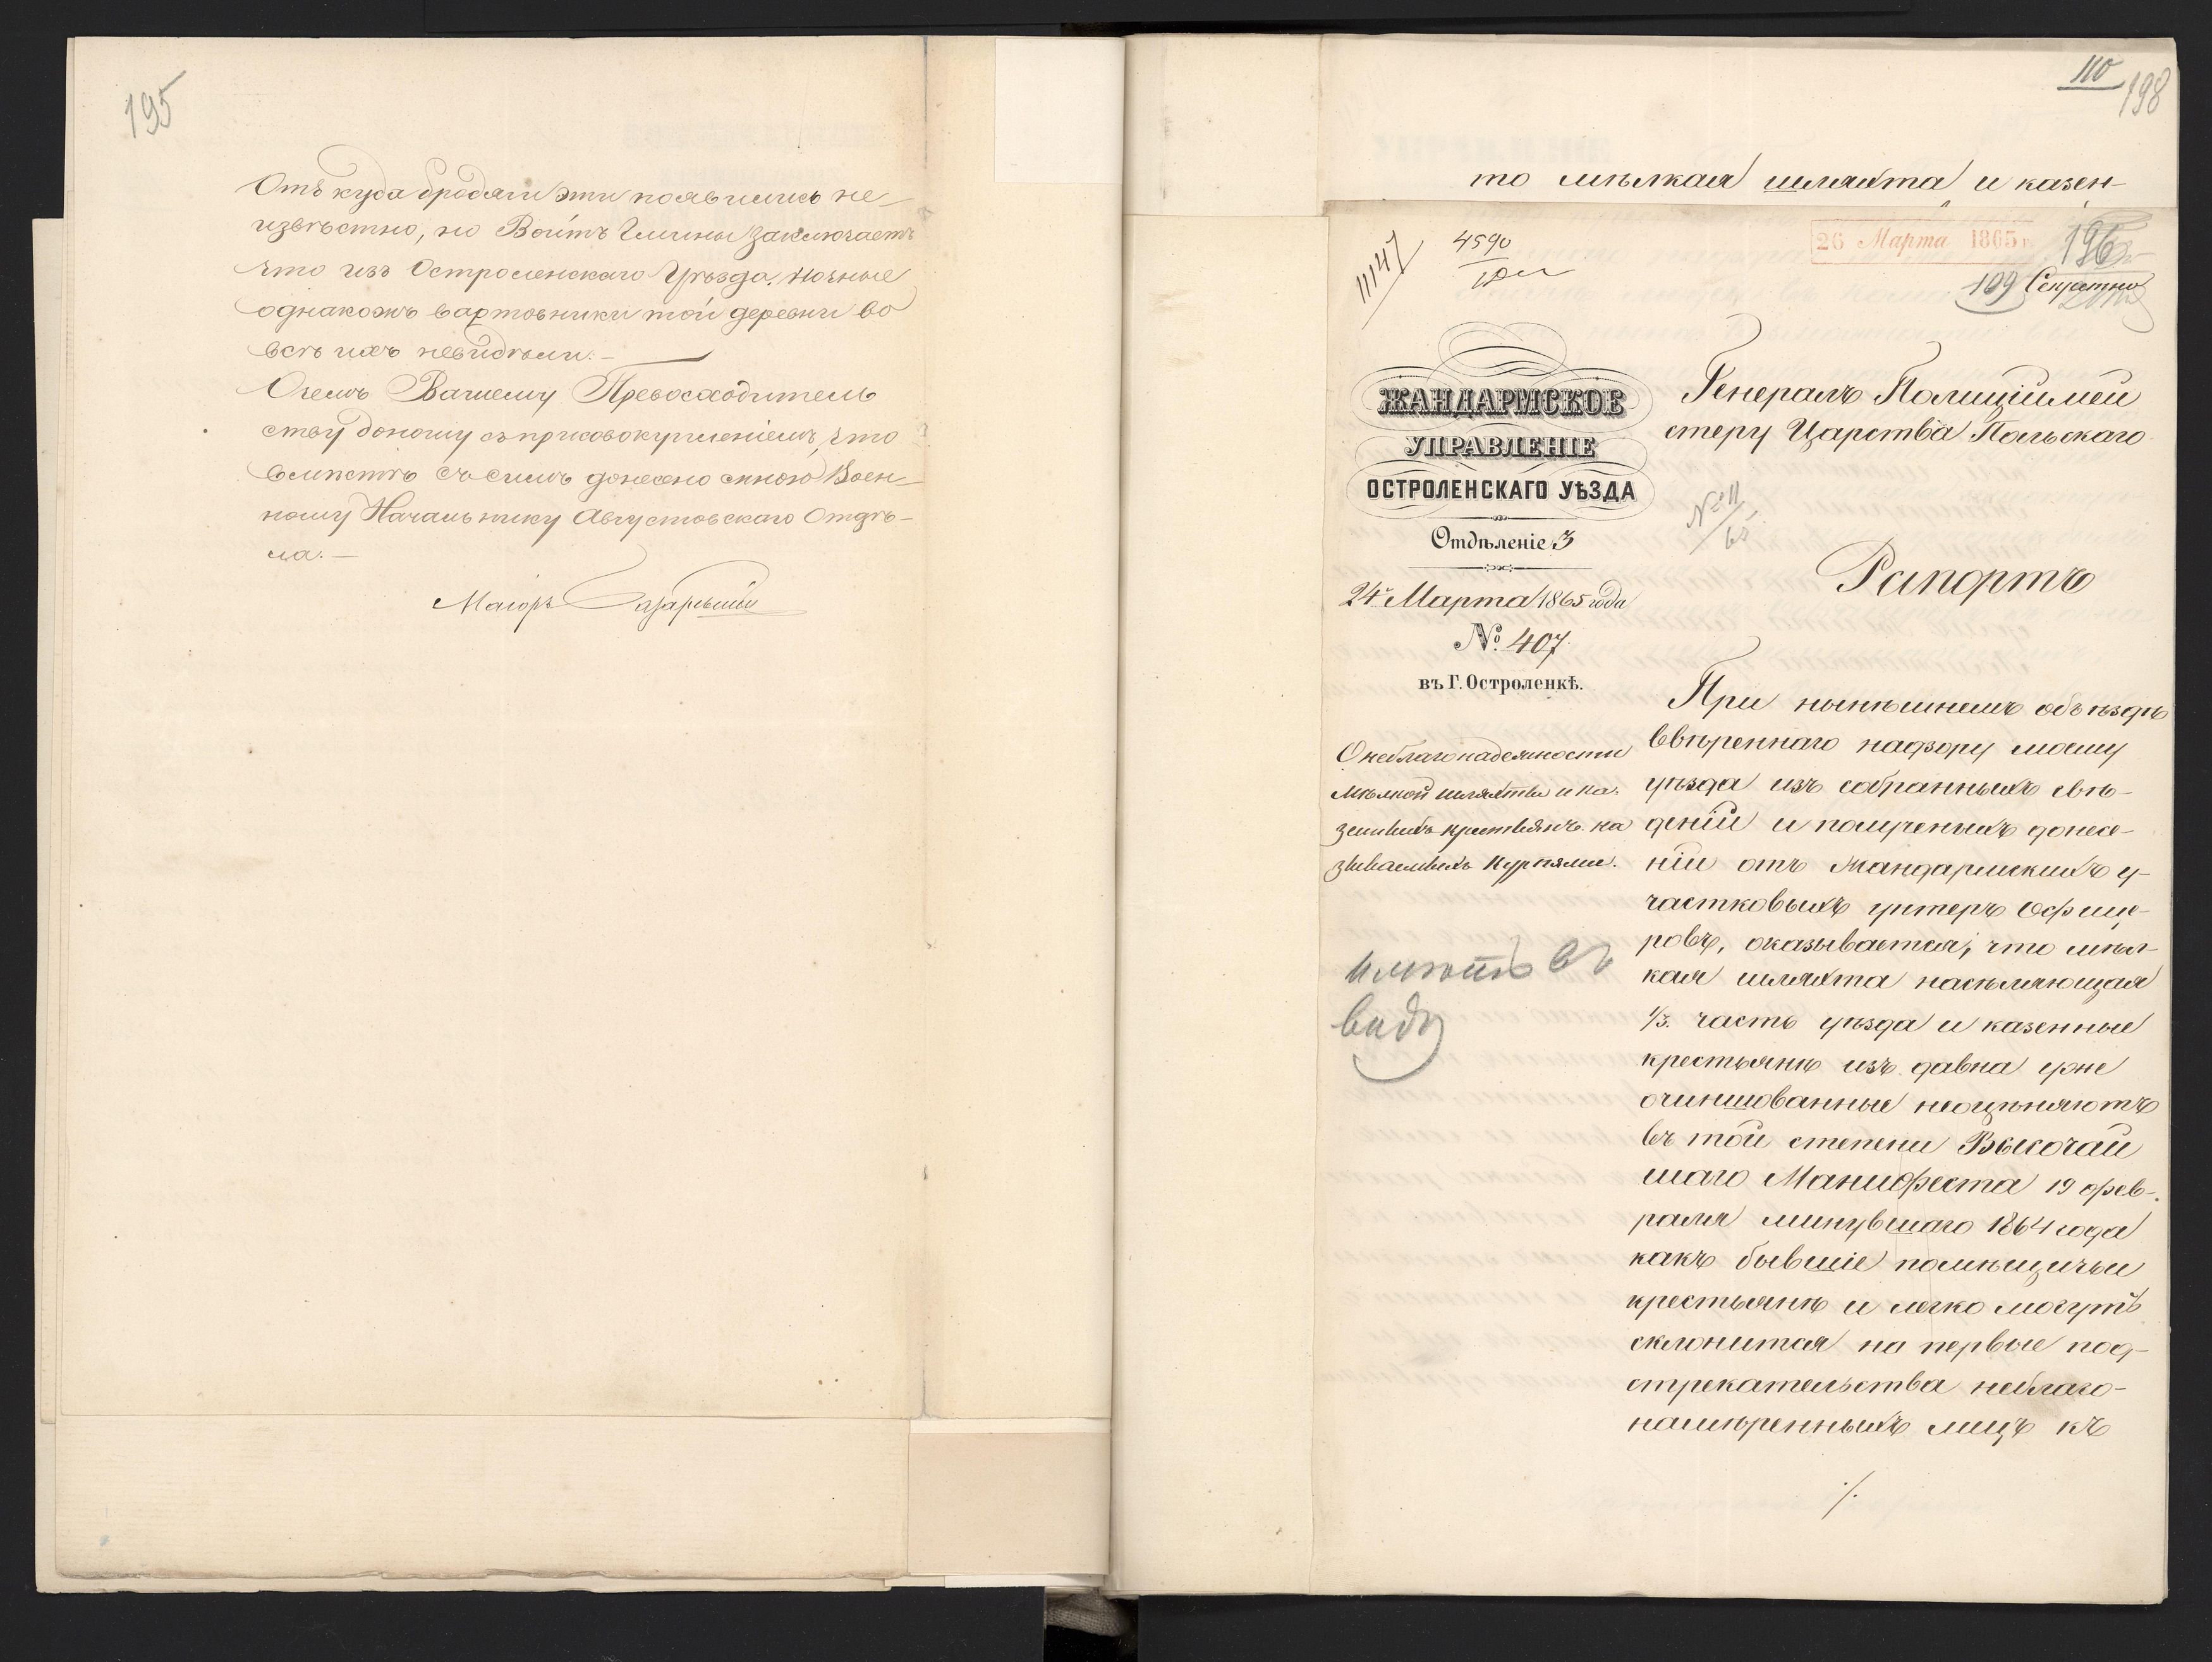 195
Отъ куда бродяги эти появились не-
извѣстно, но Войтъ Гмины заключаетъ
что изъ Остроленскаго Уѣзда. Ночные
однакожъ вартовники той деревни во
всѣ ихъ невидѣли. —
О чемъ Вашему Превосходитель
ству доношу съ присовокупленіемъ, что
вмѣстѣ съ симъ донесено мною Воен-
ному Начальнику Августовскаго Отдѣ-
ла. —
Маіоръ
110
198
то мѣлкая шляхта и казен-
11147
4590
26 Марта 1865 г.
196
109 Секретно
ЖАНДАРМСКОЕ
УПРАВЛЕНІЕ
ОСТРОЛЕНСКАГО УѢЗДА
Отдѣленіе 3
24 Марта 1865 года
№ 407.
въ Г. Остроленкѣ.
О неблагонадежности
мѣлкой шляхты и ка-
зенныхъ крестьянъ на
зываемыхъ Курпями.
имѣть въ
виду
Генералъ Полиціймей
стеру Царства Польскаго
№ 11
65
Рапортъ
При нынѣшнемъ объѣздѣ
ввѣреннаго надзору моему
уѣзда изъ собранныхъ свѣ-
дѣній и полученыхъ донесе-
ній отъ жандармскихъ у-
частковыхъ унтеръ Офице-
ровъ, оказывается, что мѣл-
кая шляхта насѣляющая
1/3. часть уѣзда и казенные
крестьянѣ изъ давна уже
очиншованные неоцѣняютъ
въ той степени Высочай
шаго Манифеста 19 фев-
раля минувшаго 1864 года
какъ бывшіе помѣщичьи
крестьянѣ и легко могутъ
склонится на первые под-
стрекательства неблаго-
намѣренныхъ лицъ къ
./.